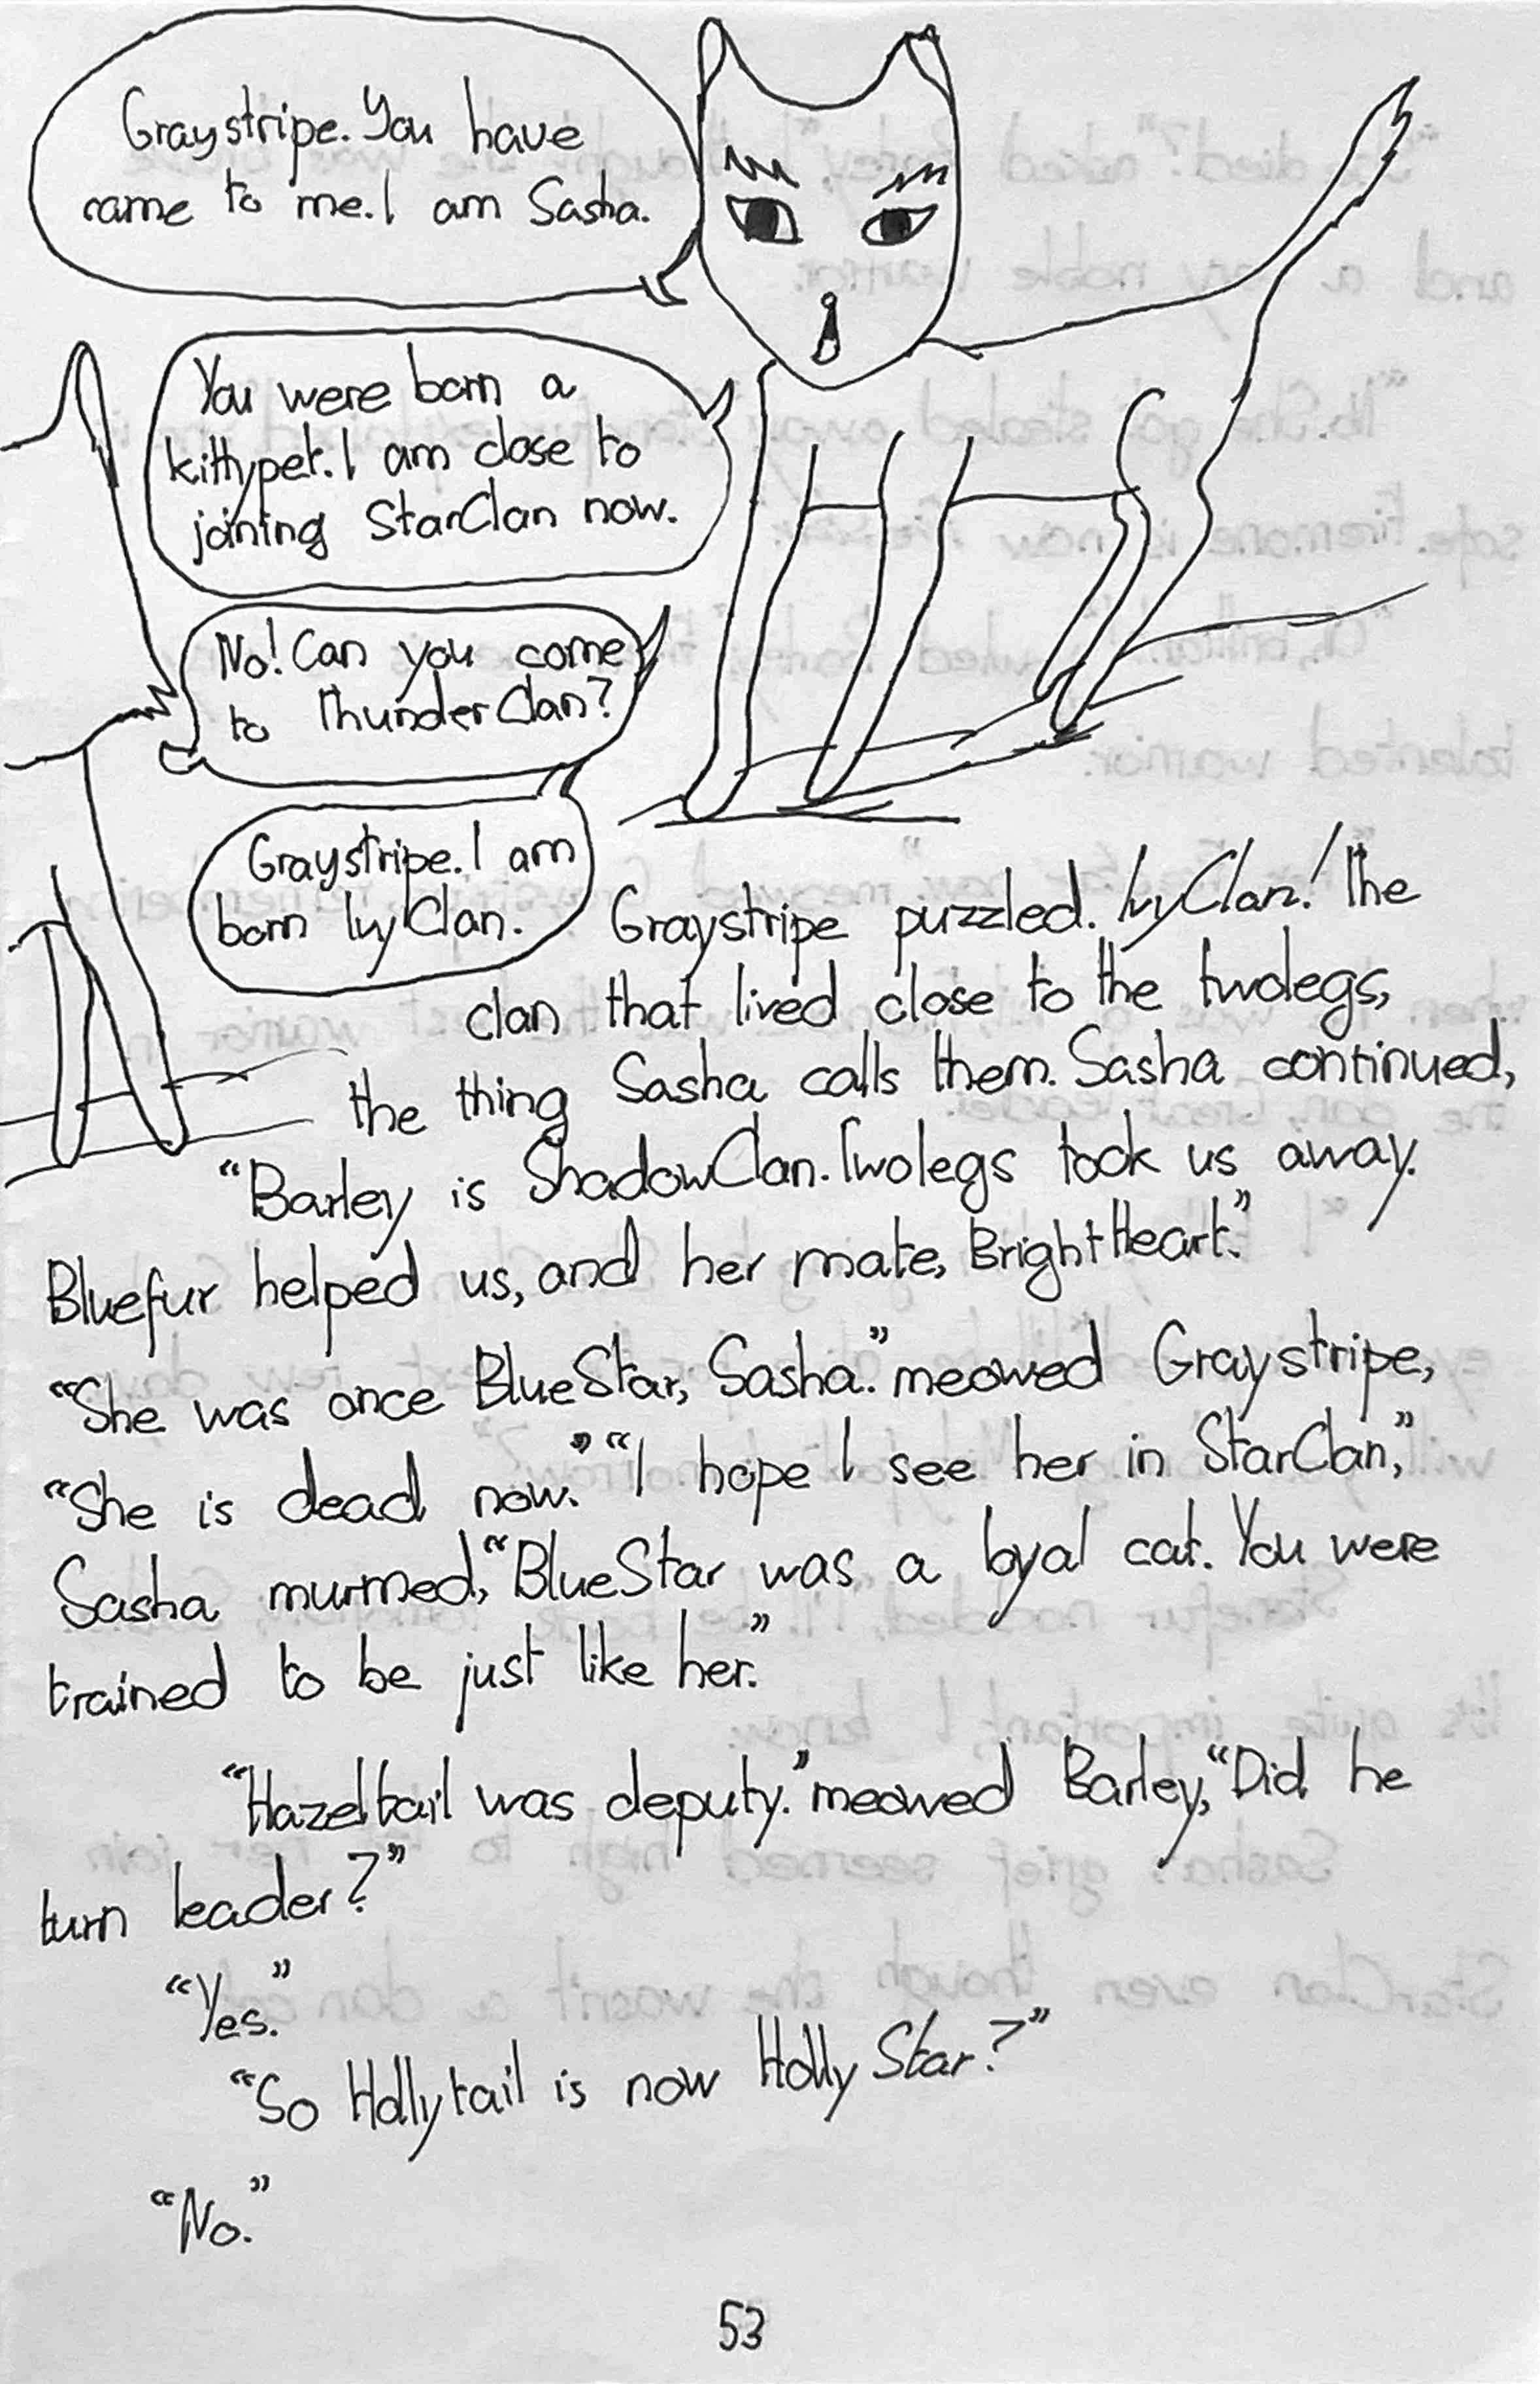 Graystripe. You have
came to me. I am Sasha.
You were born a
kittypet. I am close to
joining StarClan now.
No! Can you come
to ThunderClan?
Graystripe. I am
born IvyClan.
Graystripe puzzled. IvyClan! The
clan that lived close to the twolegs,
the thing Sasha calls them. Sasha continued,
“Barley is ShadowClan. Twolegs took us away.
Bluefur helped us, and her mate, BrightHeart.”
“She was once BlueStar, Sasha.” meowed Graystripe,
“She is dead now.” “I hope I see her in StarClan,”
Sasha murmed, “BlueStar was a loyal cat. You were
trained to be just like her.”
“Hazeltail was deputy.” meowed Barley, “Did he
turn leader?”
“Yes.”
“So Hollytail is now HollyStar?”
“No.”
53